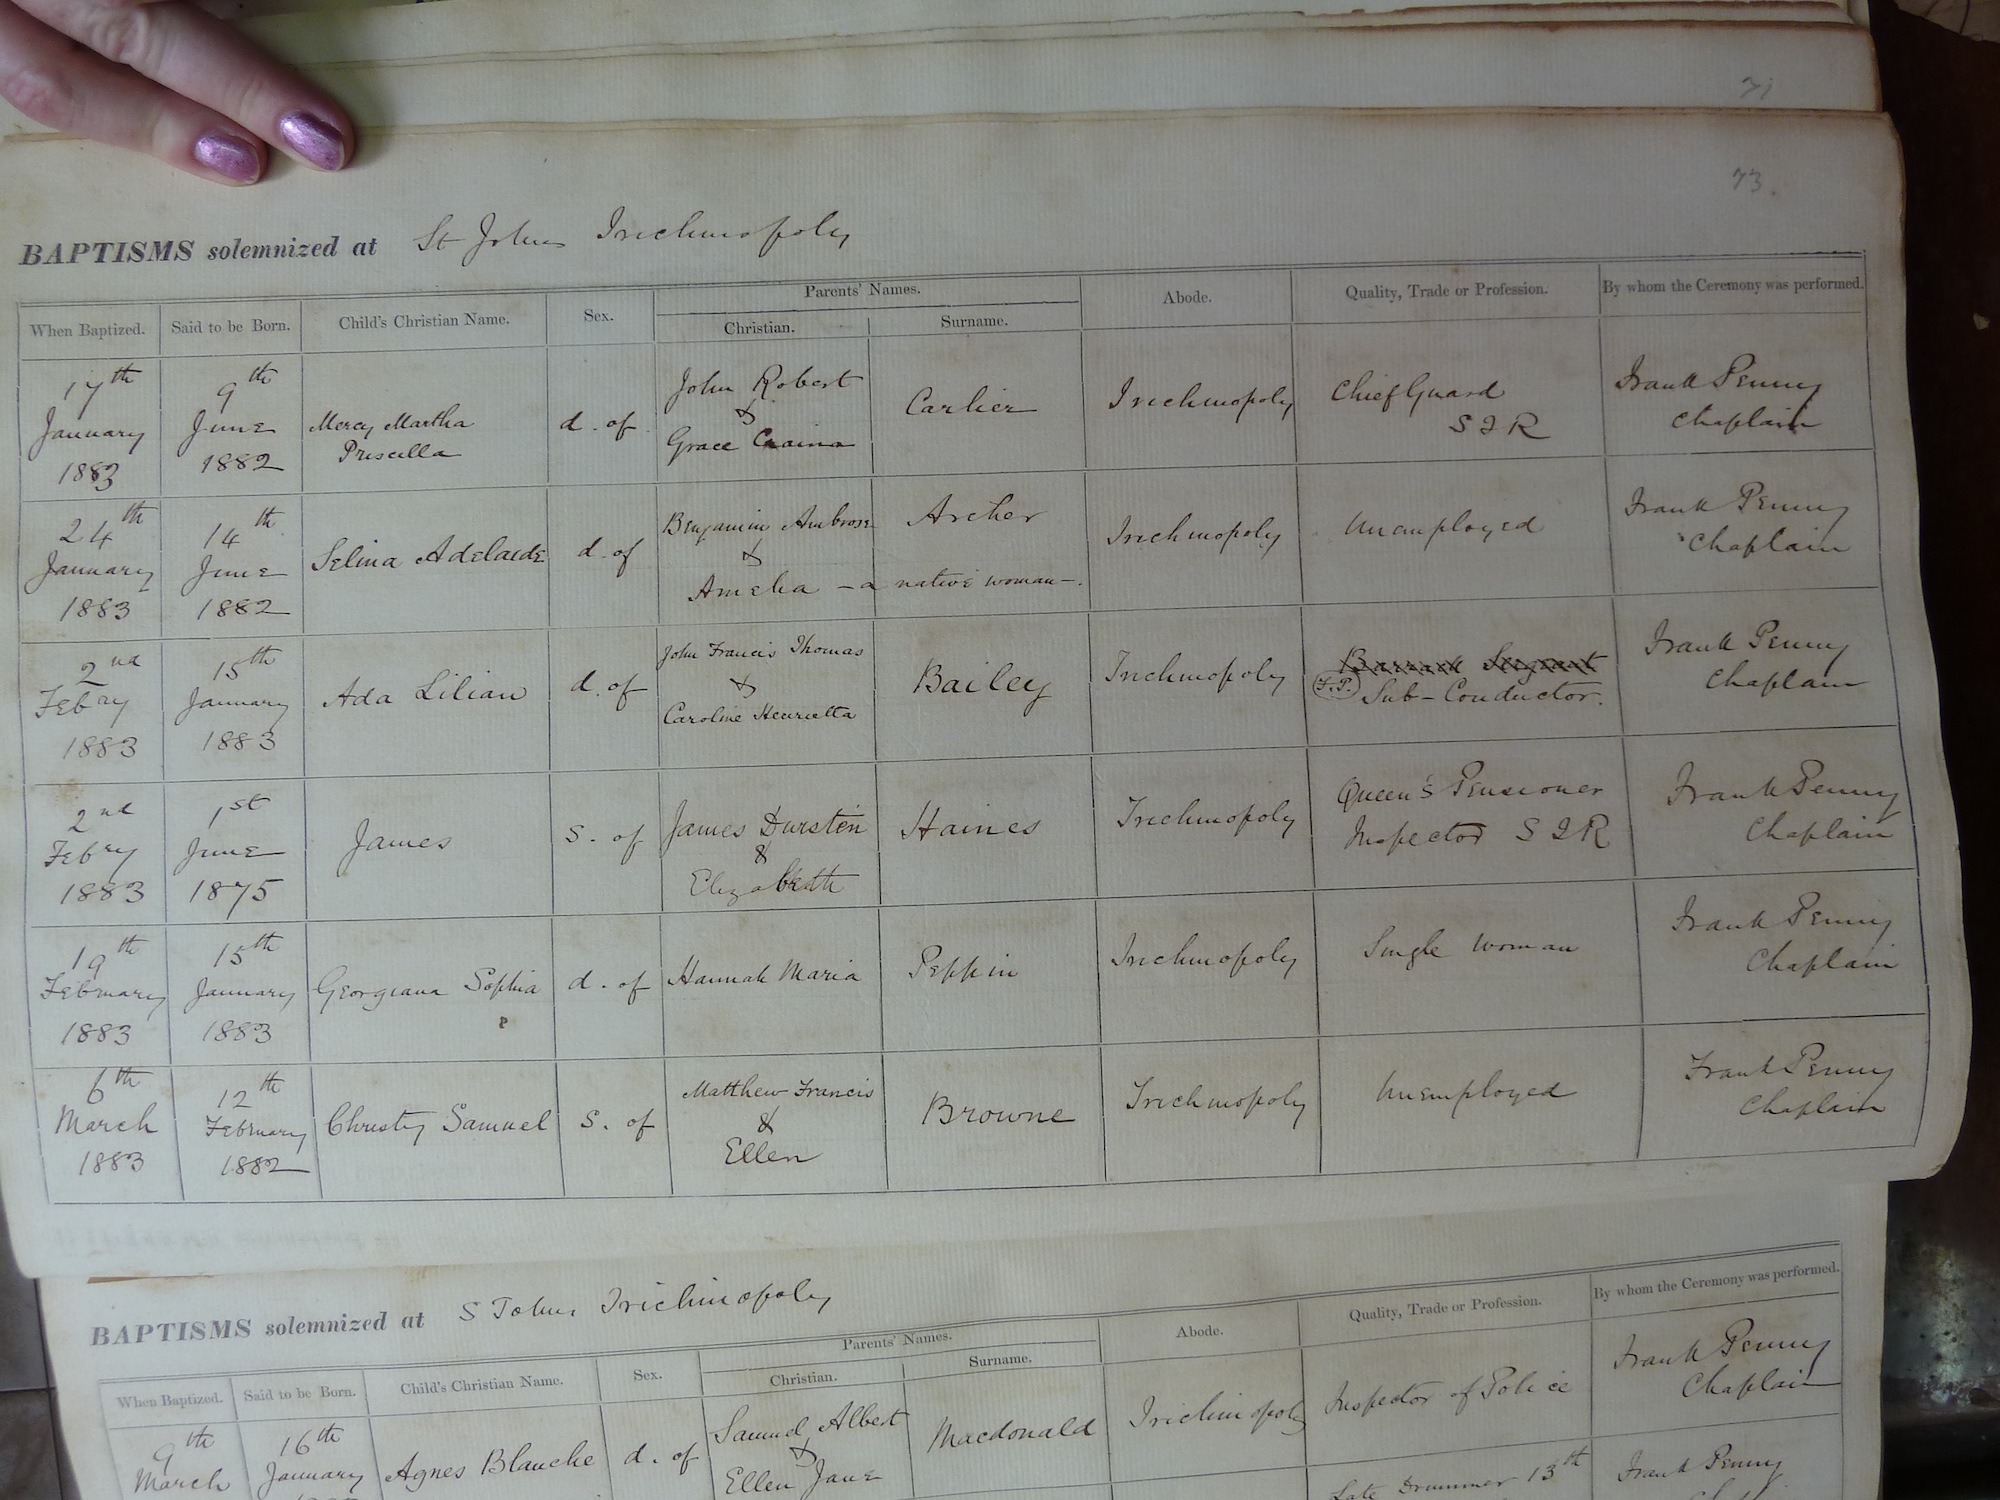 71
73.
BAPTISMS solemnized at St Johns Trichinopoly
When Baptized. Said to be Born. Child's Christian Name. Sex. Parents' Names. Abode. Quality, Trade or Profession. By whom the Ceremony was performed.
Christian. Surname.
17th January 1883 9th June 1882 Mercy Martha Priscilla d. of John Robert & Grace Carlier Trichinopoly Chief Guard S I R Frank Penny Chaplain
24th January 1883 14th June 1882 Selina Adelaide d. of Benjamin Ambrose & Amelia - a native woman -. Archer Trichinopoly Unemployed Frank Penny Chaplain
2nd Febry 1883 15th January 1883 Ada Lilian d. of John Francis Thomas & Caroline Henrietta Bailey Trichinopoly Barrack Sergeant F.P. Sub-Conductor. Frank Penny Chaplain
2nd Febry 1883 1st June 1875 James S. of James Dursten & Elizabeth Haines Trichinopoly Queen's Pensioner Inspector S I R Frank Penny Chaplain
19th February 1883 15th January 1883 Georgiana Sophia d. of Hannah Maria Peppin Trichinopoly Single woman Frank Penny Chaplain
6th March 1883 12th February 1882 Christy Samuel S. of Matthew Francis & Ellen Browne Trichinopoly Unemployed Frank Penny Chaplain
BAPTISMS solemnized at S Johns Trichinopoly
When Baptized. Said to be Born. Child's Christian Name. Sex. Parents' Names. Abode. Quality, Trade or Profession. By whom the Ceremony was performed.
Christian. Surname.
9th March 16th January Agnes Blanche d. of Samuel Albert & Ellen Jane Macdonald Trichinopoly Inspector of Police Frank Penny Chaplain
Late Drummer 13th Frank Penny